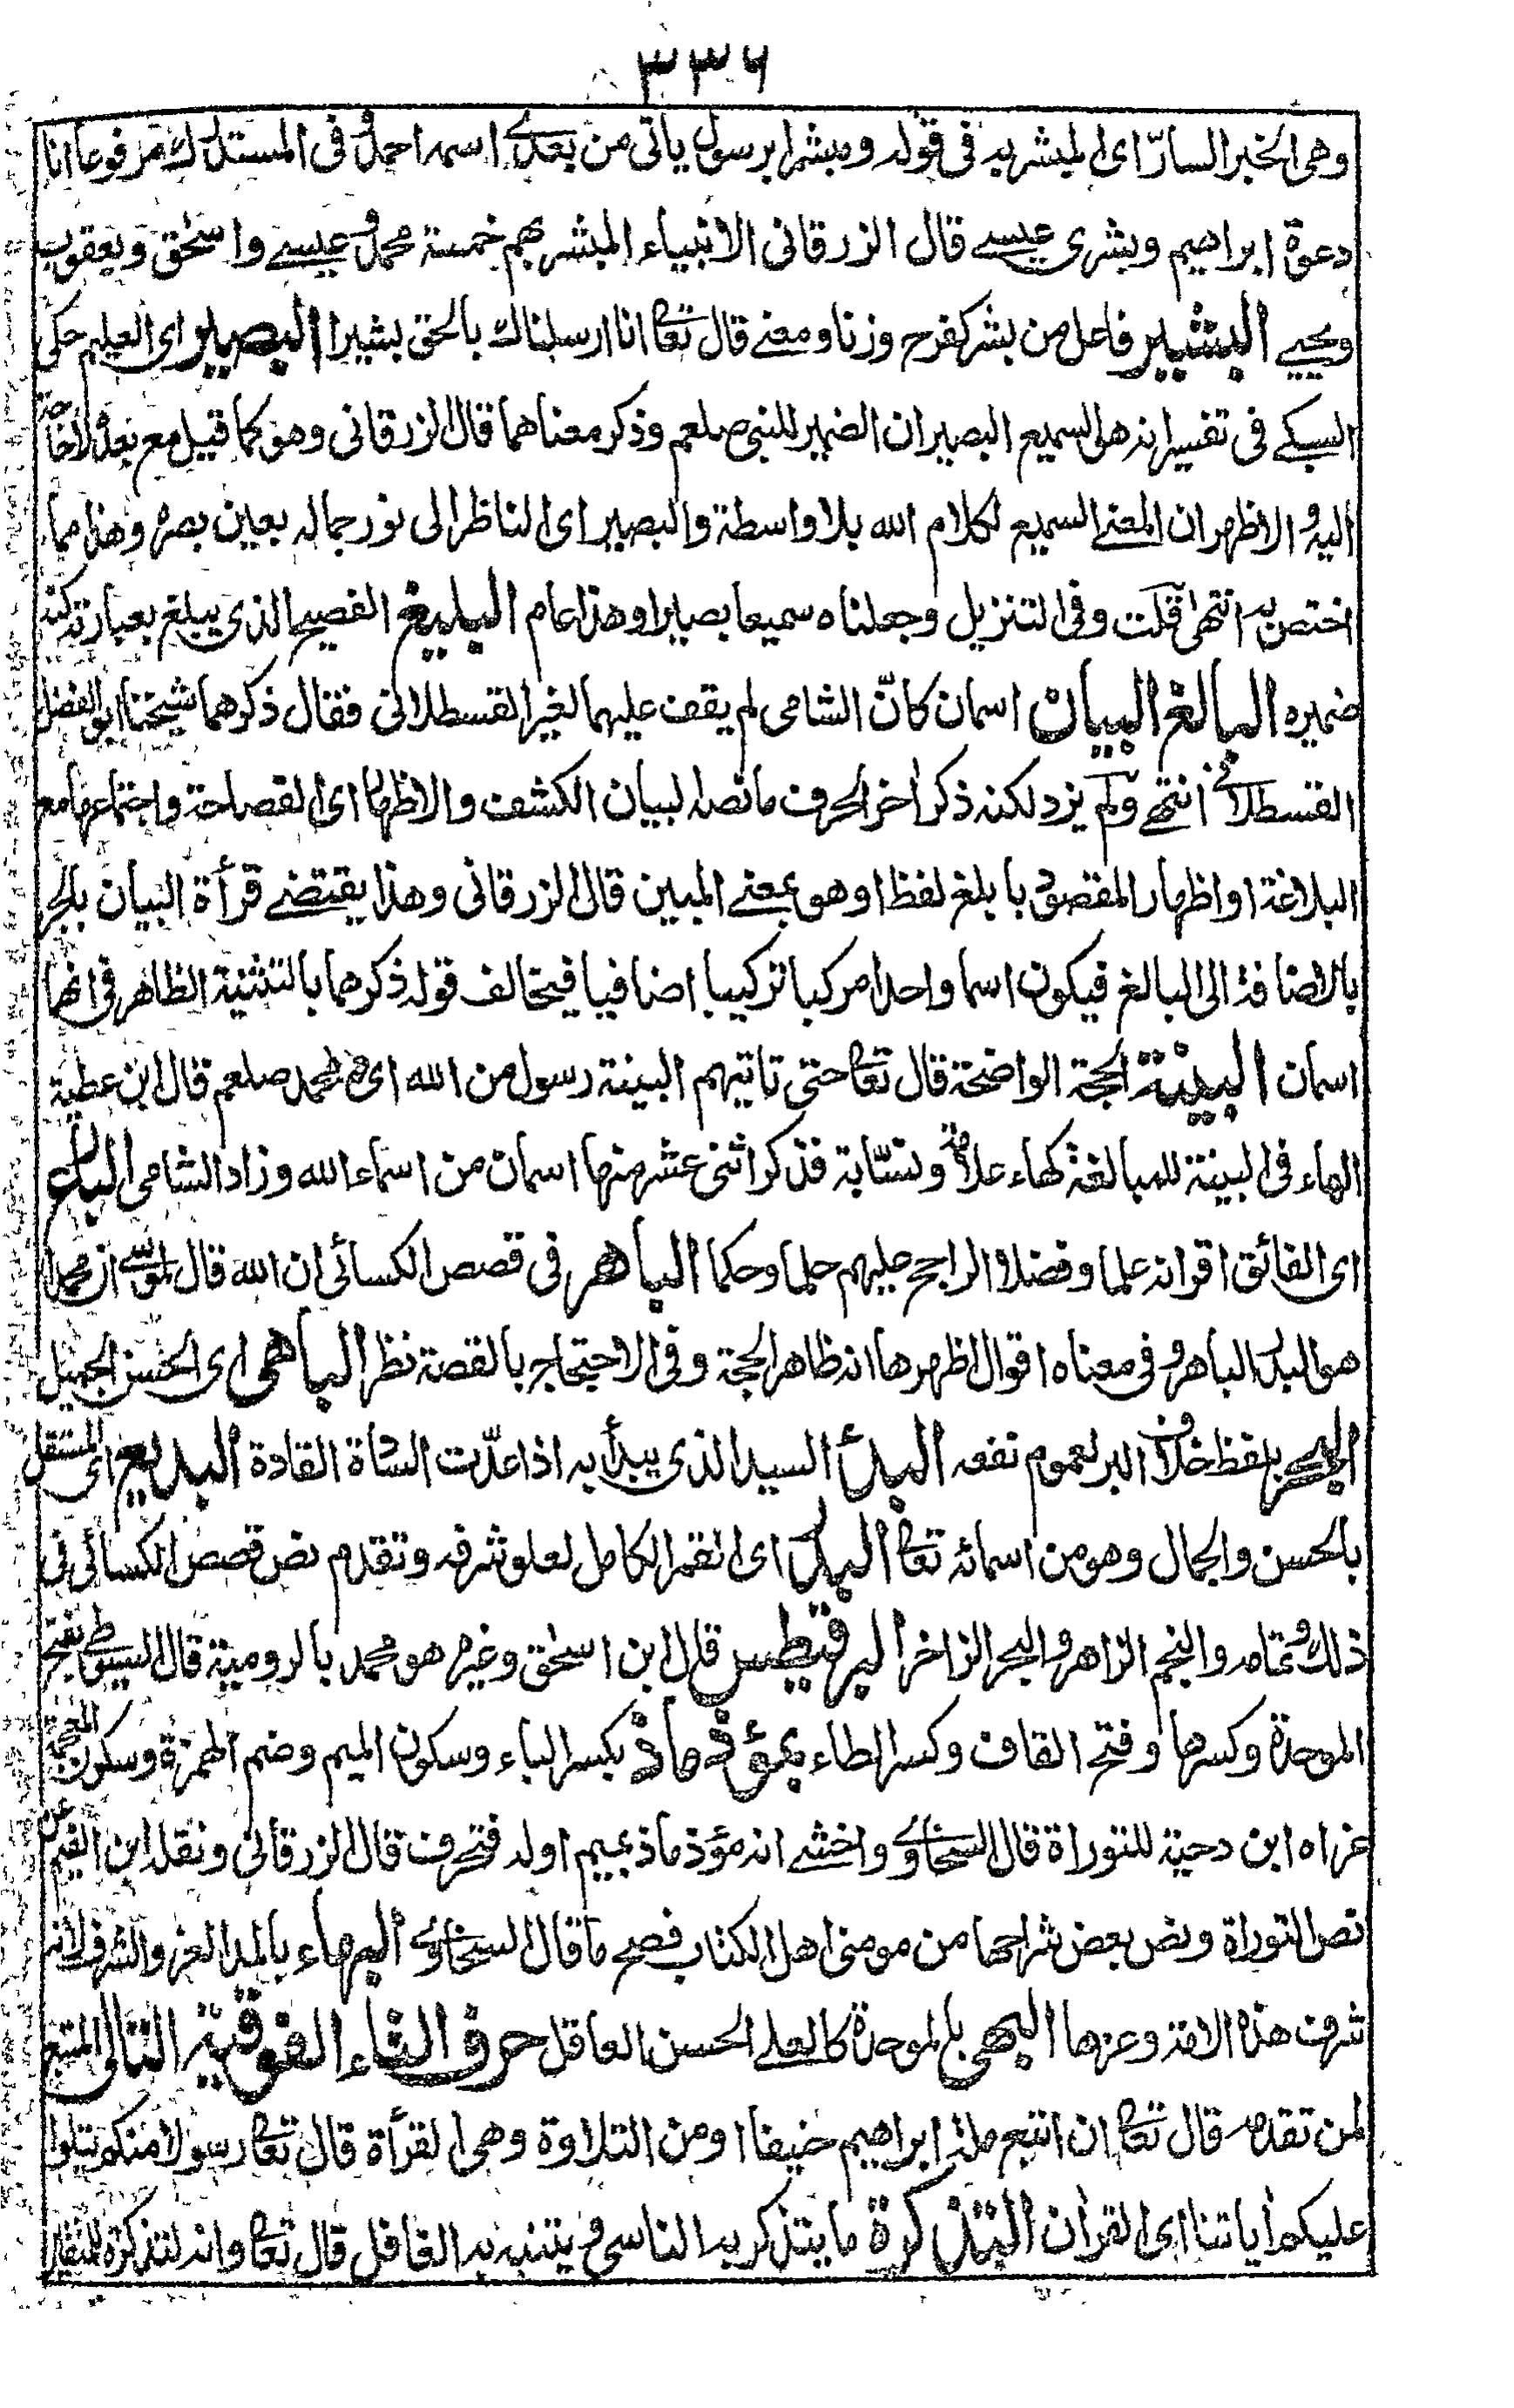 ٣٣٦
وهى الخبر السارّ اى المبشر به فى قوله ومبشرا برسول ياتى من بعدى اسمه احمد وفى المستدرك مرفوعا انا
دعوة ابراهيم وبشرى عيسى قال الزرقانى الانبياء المبشر بهم خمسة محمد وعيسى واسحق ويعقوب
ويحيى البشير فاعل من بشر كفرح وزنا ومعنے قال تعا انا ارسلناك بالحق بشيرا البصير اى العليم حكى
السبكے فى تفسير انه هو السميع البصير ان الضمير للنبى صلعم وذكر معناهما قال الزرقانى وهو كما قيل مع بعده لا حاجة
اليه والاظهر ان المعنے السميع لكلام الله بلا واسطة والبصير اى الناظر الى نور جماله بعين بصره وهذا مما
اختص به انتهى قلت وفى التنزيل وجعلناه سميعا بصيرا وهذا عام البليغ الفصيح الذى يبلغ بعبارته كنه
ضميره البالغ البيان اسمان كانّ الشامى لم يقف عليهما لغير القسطلانى فقال ذكرهما شيخنا ابو الفضل
القسطلانى انتهے ولم يزد لكنه ذكر اخر الحرف ما نصه البيان الكشف والاظهار اى الفصاحة واجتماعها مع
البلاغة او اظهار المقصود بابلغ لفظ او هو بمعنے المبين قال الزرقانى وهذا يقتضے قرأة البيان بالجر
بالاضافة الى البالغ فيكون اسما واحدا مركبا تركيبا اضافيا فيخالف قوله ذكرهما بالتثنية الظاهر فى انهما
اسمان البينة الحجة الواضحة قال تعا حتى تاتيهم البينة رسول من الله اى هو محمد صلعم قال ابن عطية
الهاء فى البينة للمبالغة كهاء علامة ونسّابة فذكر اثنى عشر منها اسمان من اسماء الله وزاد الشامى البارع
اى الفائق اقرانه علما وفضلا والراجح عليهم حلما وحكما الباهر فى قصص الكسائى ان الله قال لموسى ان محمدا
هو البدر الباهر وفى معناه اقوال اظهرها انه ظاهر الحجة وفى الاحتجاج بالقصة نظر الباهى اى الحسن الجميل
البحر بلفظ خلاف البر لعموم نفعه البدأ السيد الذى يبدأ به اذا عدّت السادة القادة البديع اى المستقل
بالحسن والجمال وهو من اسمائه تعا البدر اى القمر الكامل لعلو شرفه وتقدم نص قصص الكسائى فى
ذلك وتمامه والنجم الزاهر والبحر الزاخر البرقيطس قال ابن اسحق وغيره هو محمد بالرومية قال السيوطى بفتح
الموحدة وكسرها وفتح القاف وكسر الطاء بمؤذ ماذ بكسر الباء وسكون الميم وضم الهمزة وسكون المعجمة
عزاه ابن دحية للتوراة قال السخاوى واخشے انه مؤذ ماذ بميم اوله فتحرف قال الزرقانى ونقله ابن القيم عن
نص التوراة ونص بعض شراحها من مومنى اهل الكتاب فصح ما قال السخاوى البهاء بالمد العز والشرف لانه
شرف هذه الامة وعزها البهى بالموحدة كالعلے الحسن العاقل حرف التاء الفوقية التالى المتبع
لمن تقدمه قال تعا ان اتبع ملة ابراهيم حنيفا او من التلاوة وهى القرأة قال تعا رسولا منكم يتلوا
عليكم اياتنا اى القران التذكرة ما يتذكر به الناسى ويتنبه به الغافل قال تعا وانه لتذكرة للمتقين